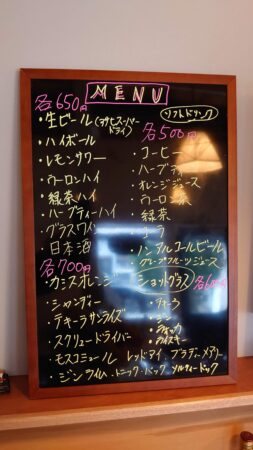 MENU
各650円
・生ビール(アサヒスーパードライ)
・ハイボール
・レモンサワー
・ウーロンハイ
・緑茶ハイ
・ハーブティーハイ
・グラスワイン
・日本酒
各700円
・カシスオレンジ
・シャンディー
・テキーラサンライズ
・スクリュードライバー
・モスコミュール レッドアイ ブラディーメアリー
・ジンライム、トニック・バック ソルティードック
ソフトドリンク
各500円
・コーヒー
・ハーブティ
・オレンジジュース
・ウーロン茶
・緑茶
・コーラ
・ノンアルコールビール
・グレープフルーツジュース
ショットグラス 各
・ジン
・ウォッカ
・ウイスキー